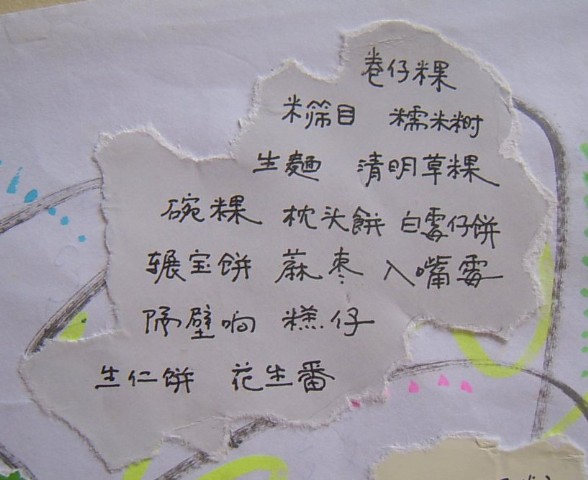 卷仔粿
米筛目 糯米粿
生麵 清明草粿
碗粿 枕头餅 白雪仔餅
辗宝餅 蔴枣 入嘴雪
隔壁响 糕仔
生仁餅 花生番